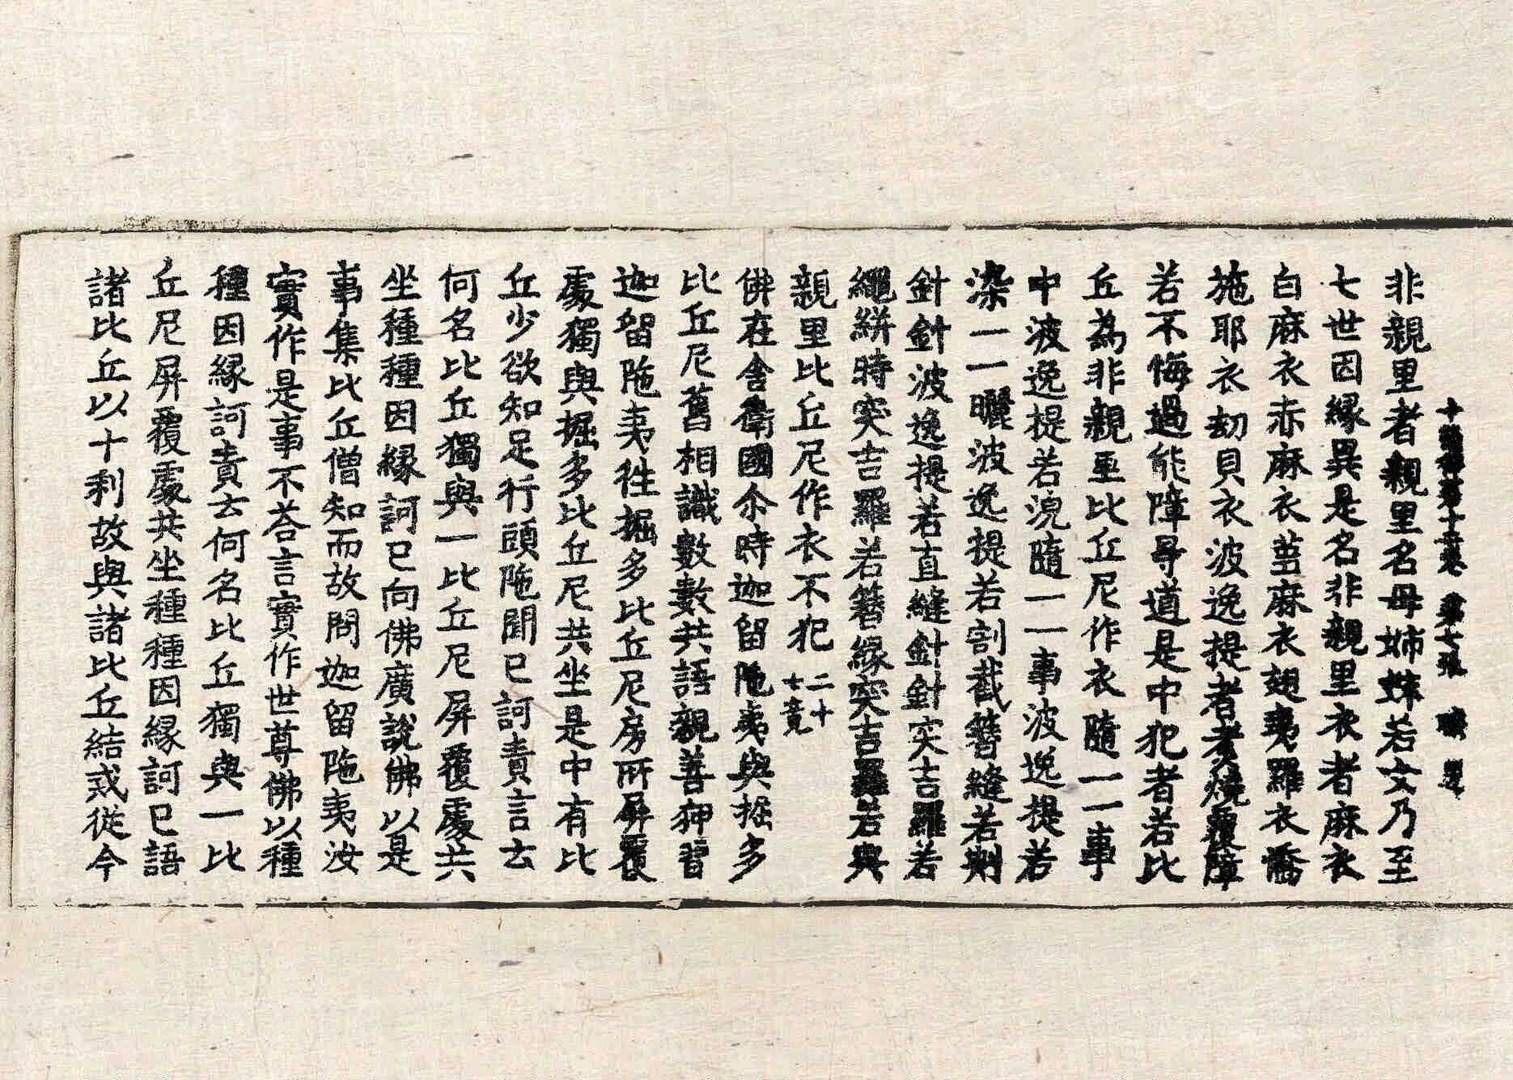 十誦律第十二卷 第七張
非親里者親里名母姉妹若女乃至
七世因縁異是名非親里衣者麻衣
白麻衣赤麻衣芻麻衣翅夷羅衣憍
施耶衣劫貝衣波逸提者者燒覆障
若不悔過能障㝵道是中犯者若比
丘為非親里比丘尼作衣隨一一事
中波逸提若浣隨一一事波逸提若
染一一曬波逸提若割截簪縫若剌
針針波逸提若直縫針針突吉羅若
繩絣時突吉羅若簪縁突吉羅若與
親里比丘尼作衣不犯 二十七竟
佛在舎衛國尒時迦留陁夷與掘多
比丘尼舊相識數數共語親善狎習
迦留陁夷徃掘多比丘尼房所屏覆
處獨與掘多比丘尼共坐是中有比
丘少欲知足行頭陁聞已訶責言云
何名比丘獨與一比丘尼屏覆處共
坐種種因縁訶已向佛廣說佛以是
事集比丘僧知而故問迦留陁夷汝
實作是事不荅言實作世尊佛以種
種因縁訶責云何名比丘獨與一比
丘尼屏覆處共坐種種因縁訶已語
諸比丘以十利故與諸比丘結戒從今